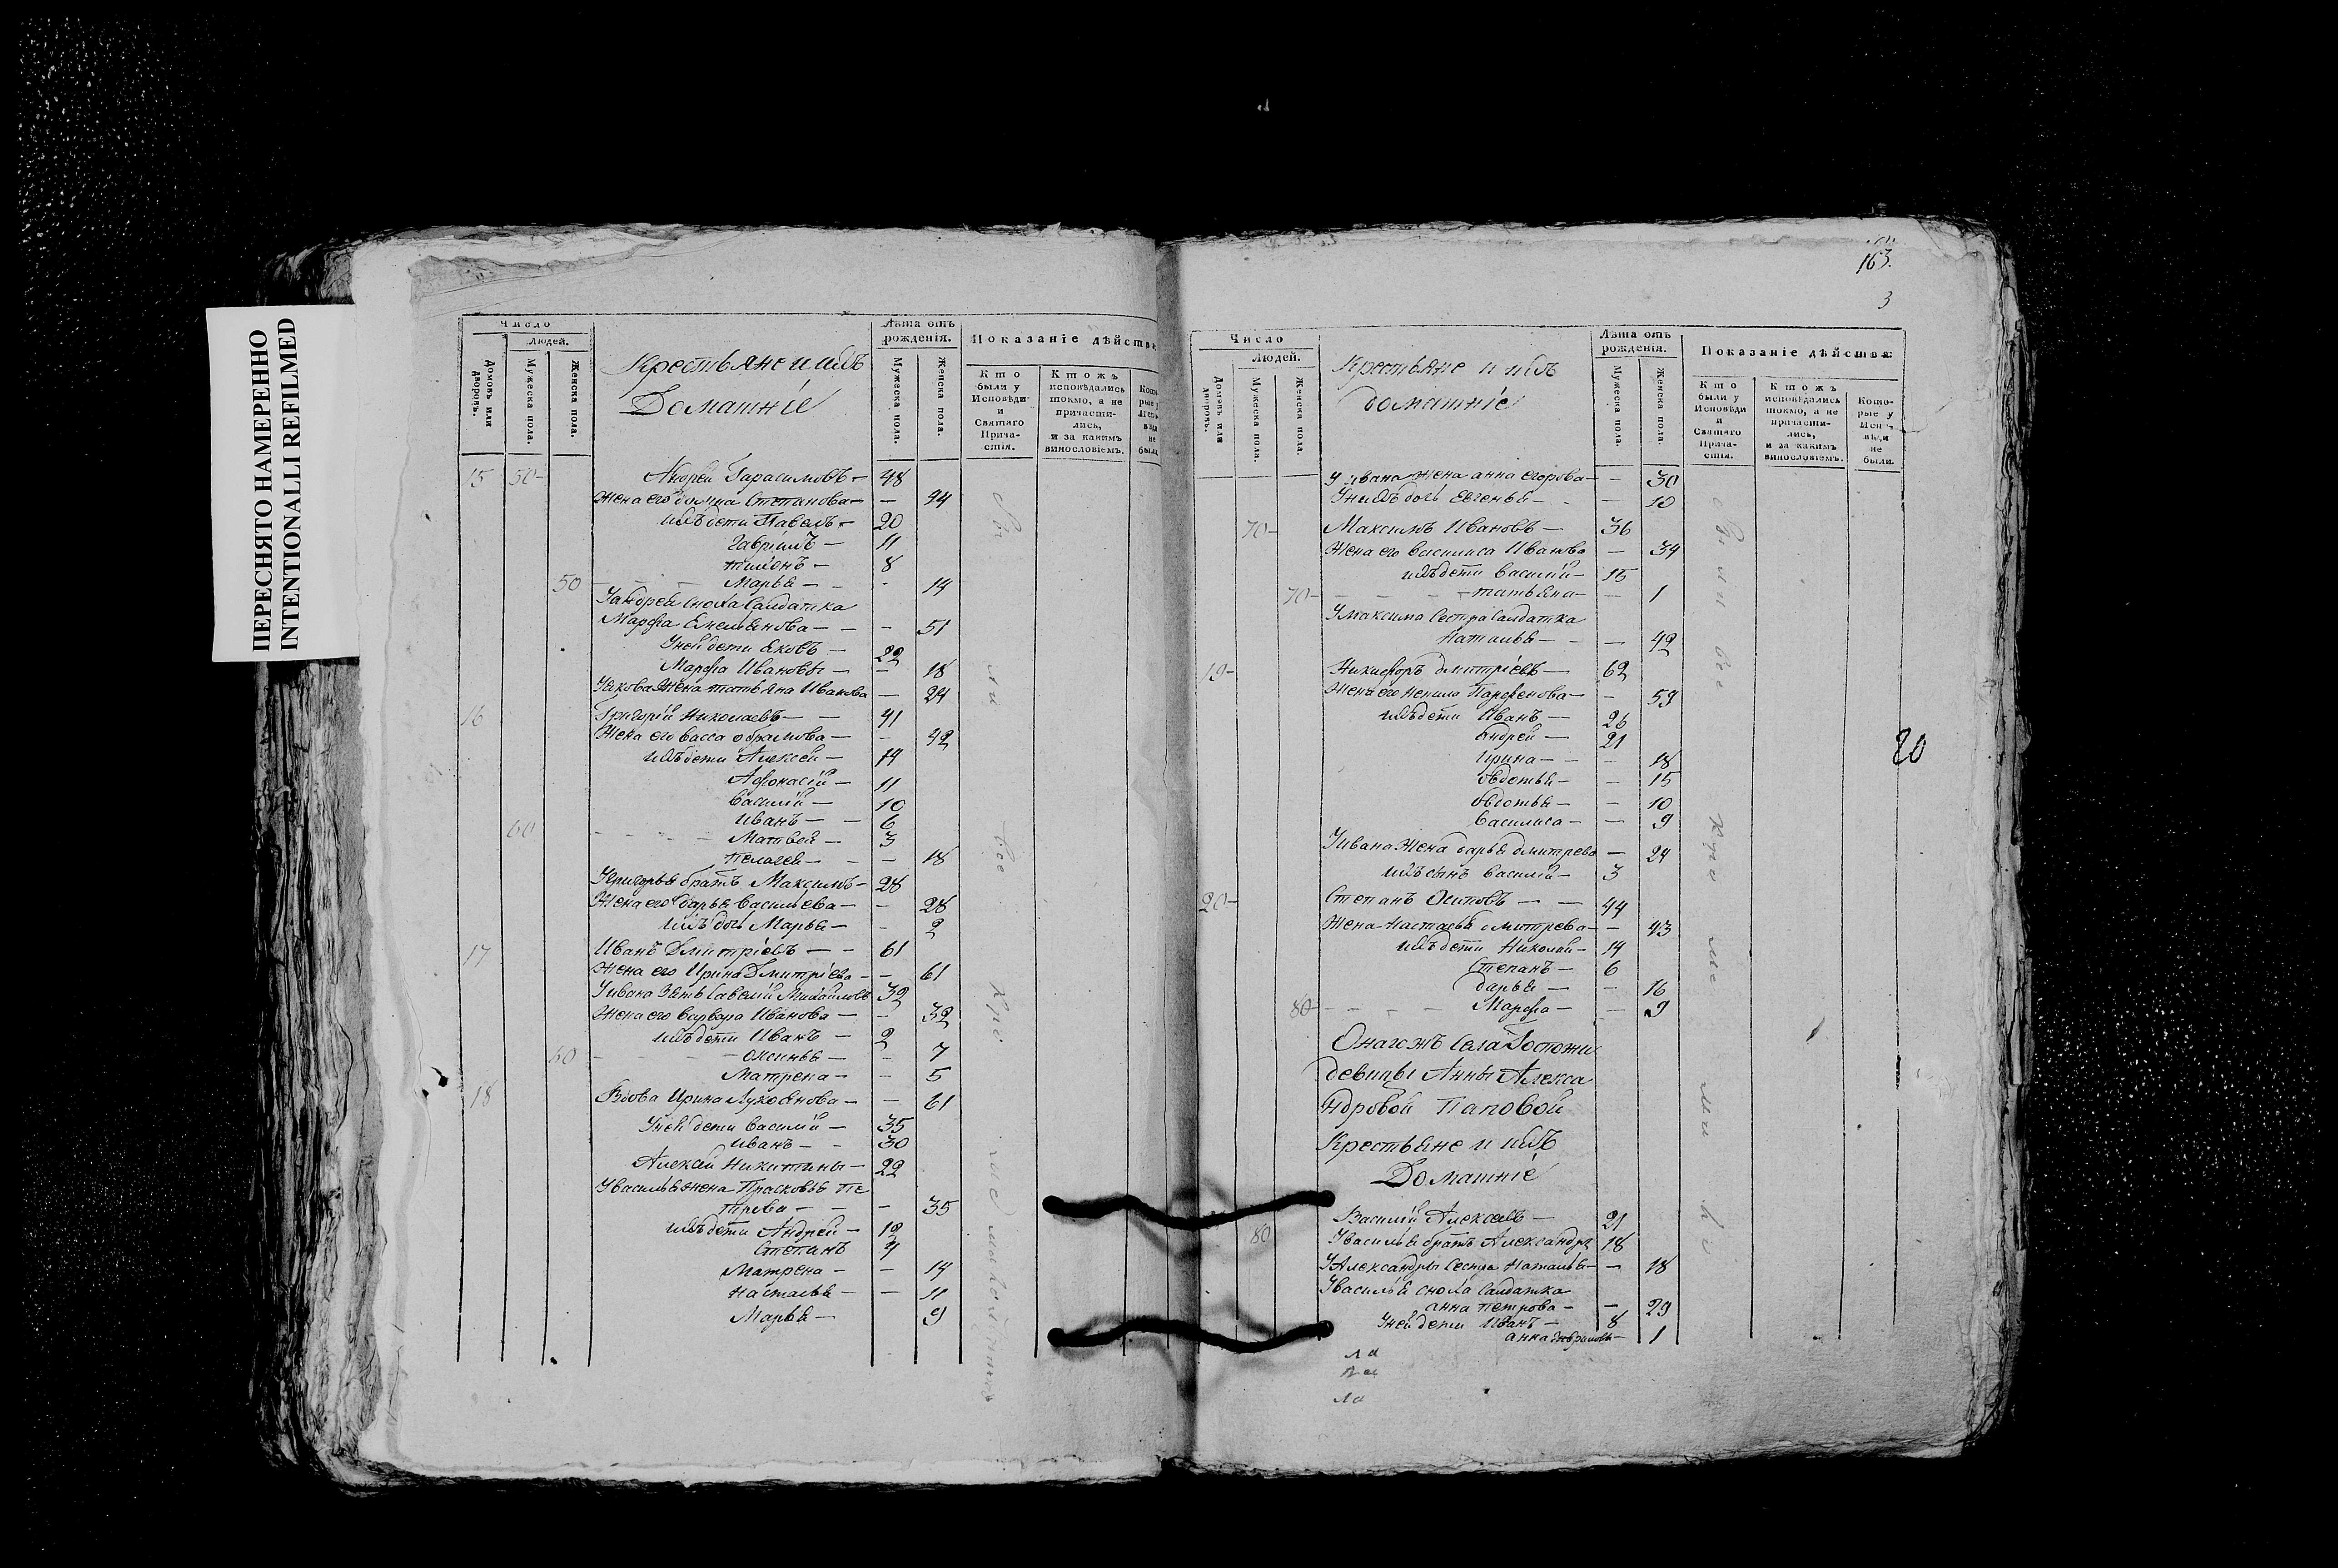 ПЕРЕСНЯТО НАМЕРЕННО
INTENTIONALLI REFILMED
Число
Людей.
Домовъ или дворовъ.
Мужеска пола.
Женска пола.
Крестьяне и ихъ
Домашніе
Лѣта отъ рожденія.
Мужеска пола.
Женска пола.
Показаніе дѣйства
Кто были у Исповѣди и Святаго Причастія.
Ктожъ исповѣдались токмо, а не причастились, и за какимъ винословіемъ.
15 50 Андрей Гарасимовъ - 48
Жена его Степанова - - 44
ихъ дети Павелъ - 20
Гавріилъ - 11
8
50 Марья - - 14
У андрея сноха Салдатка
Марфа Емельянова - - 51
У ней дети Яковъ - 22
Марфа Ивановы - - 18
У якова Жена татьяна Иванова - 24
16 Григорій Николаевъ - - 41
Жена его васса обрамова - - 42
ихъ дети Алексей - 14
Афонасій - 11
василій - 10
иванъ - - 6
60 Матвей - 3
пелагея - - - 18
У григорья братъ Максимъ - 28
Жена его дарья васильева - - 28
ихъ дочь Марья - - 2
17 Иванъ Дмитріевъ - - 61
Жена его Ирина Дмитріева - - 61
У ивана зять Савелій Михайловъ 32
Жена его варвара Иванова - - 32
ихъ дети Иванъ - 2
60 - оксинья - - 7
Матрена - - 5
18 Вдова Ирина Лукоянова - - 61
У ней дети василій - 35
иванъ - - 30
Алексей Никитины - 22
У василья жена Прасковья Пе
трова - - - 35
ихъ дети Андрей - 12
Степанъ 4
Матрена - - 14
Настасья - - 11
Марья - 9
163.
3
Число
Людей.
Домовъ или дворовъ.
Мужеска пола.
Женска пола.
Крестьяне и ихъ
домашніе
Лѣта отъ рожденія.
Мужеска пола.
Женска пола.
Показаніе дѣйства
Кто были у Исповѣди и Святаго Причастія.
Ктожъ исповѣдались токмо, а не причастились, и за какимъ винословіемъ.
Которые у Исповѣди не были.
У ивана жена анна егорова - - 30
У нихъ дочь Евгенья - - 10
70 - Максимъ Ивановъ - 36
Жена его василиса Иванова - 34
ихъ дети василій - 15
70 - - татьяна - - 1
У максима Сестра Салдатка
Наталья - - - 42
19 - Никифоръ дмитріевъ - 62
Жена его Ненила Парфенова - - 59
ихъ дети Иванъ - 26
андрей - 21
ирина - - - 18
овдотья - - 15
овдотья - - 10
василиса - - 9
У ивана Жена дарья дмитрева - 24
ихъ сынъ василій - 3
20 - Степанъ Осиповъ - - 44
Жена Настасья дмитрева - - 43
ихъ дети Николай - 14
Степанъ - 6
дарья - - 16
80 - - - - Марфа - - 9
Онагожъ села Госпожи
девицы Анны Алекса
ндровой Паповой
Крестьяне и ихъ
Домашніе
Василій Алексеевъ - 21
80 У василья братъ Александръ 18
У Александры Сестра Наталья - - 18
У василья сноха Салдатка
анна петрова - - 29
У ней дети Иванъ - 8
анна - 1
20